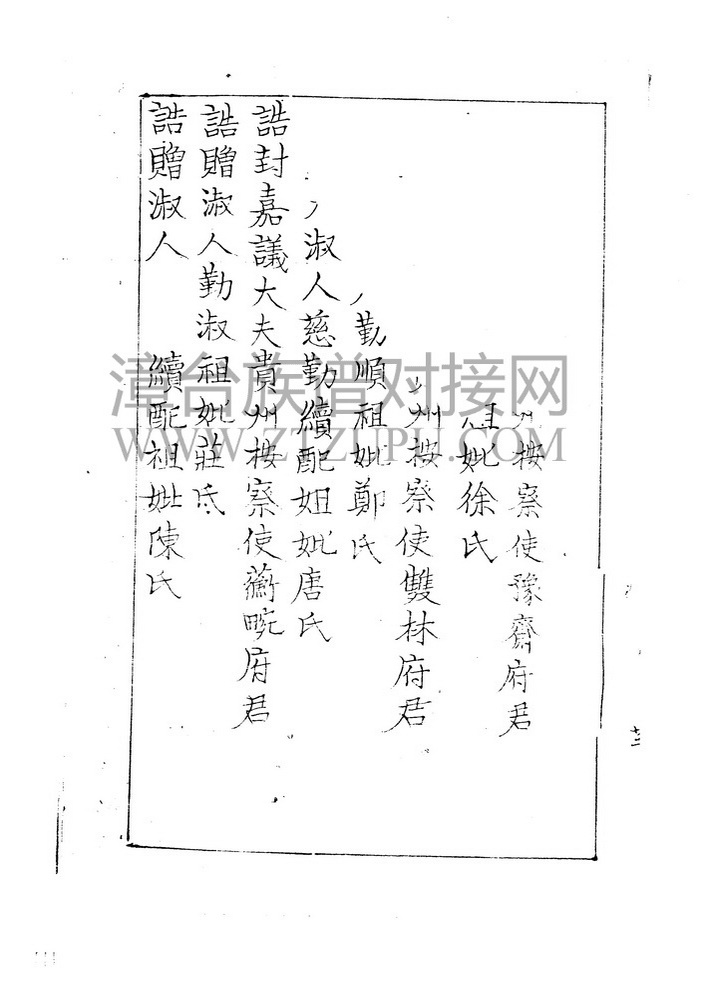 州按察使豫齋府君
妣徐氏
州按察使雙林府君
勤順祖妣鄭氏
淑人慈勤續配妣唐氏
誥封嘉議大夫貴州按察使蘅畹府君
誥贈淑人勤淑祖妣莊氏
誥贈淑人 續配祖妣陳氏
十二
漳台族谱对接网
WWW.ZTZUPU.COM